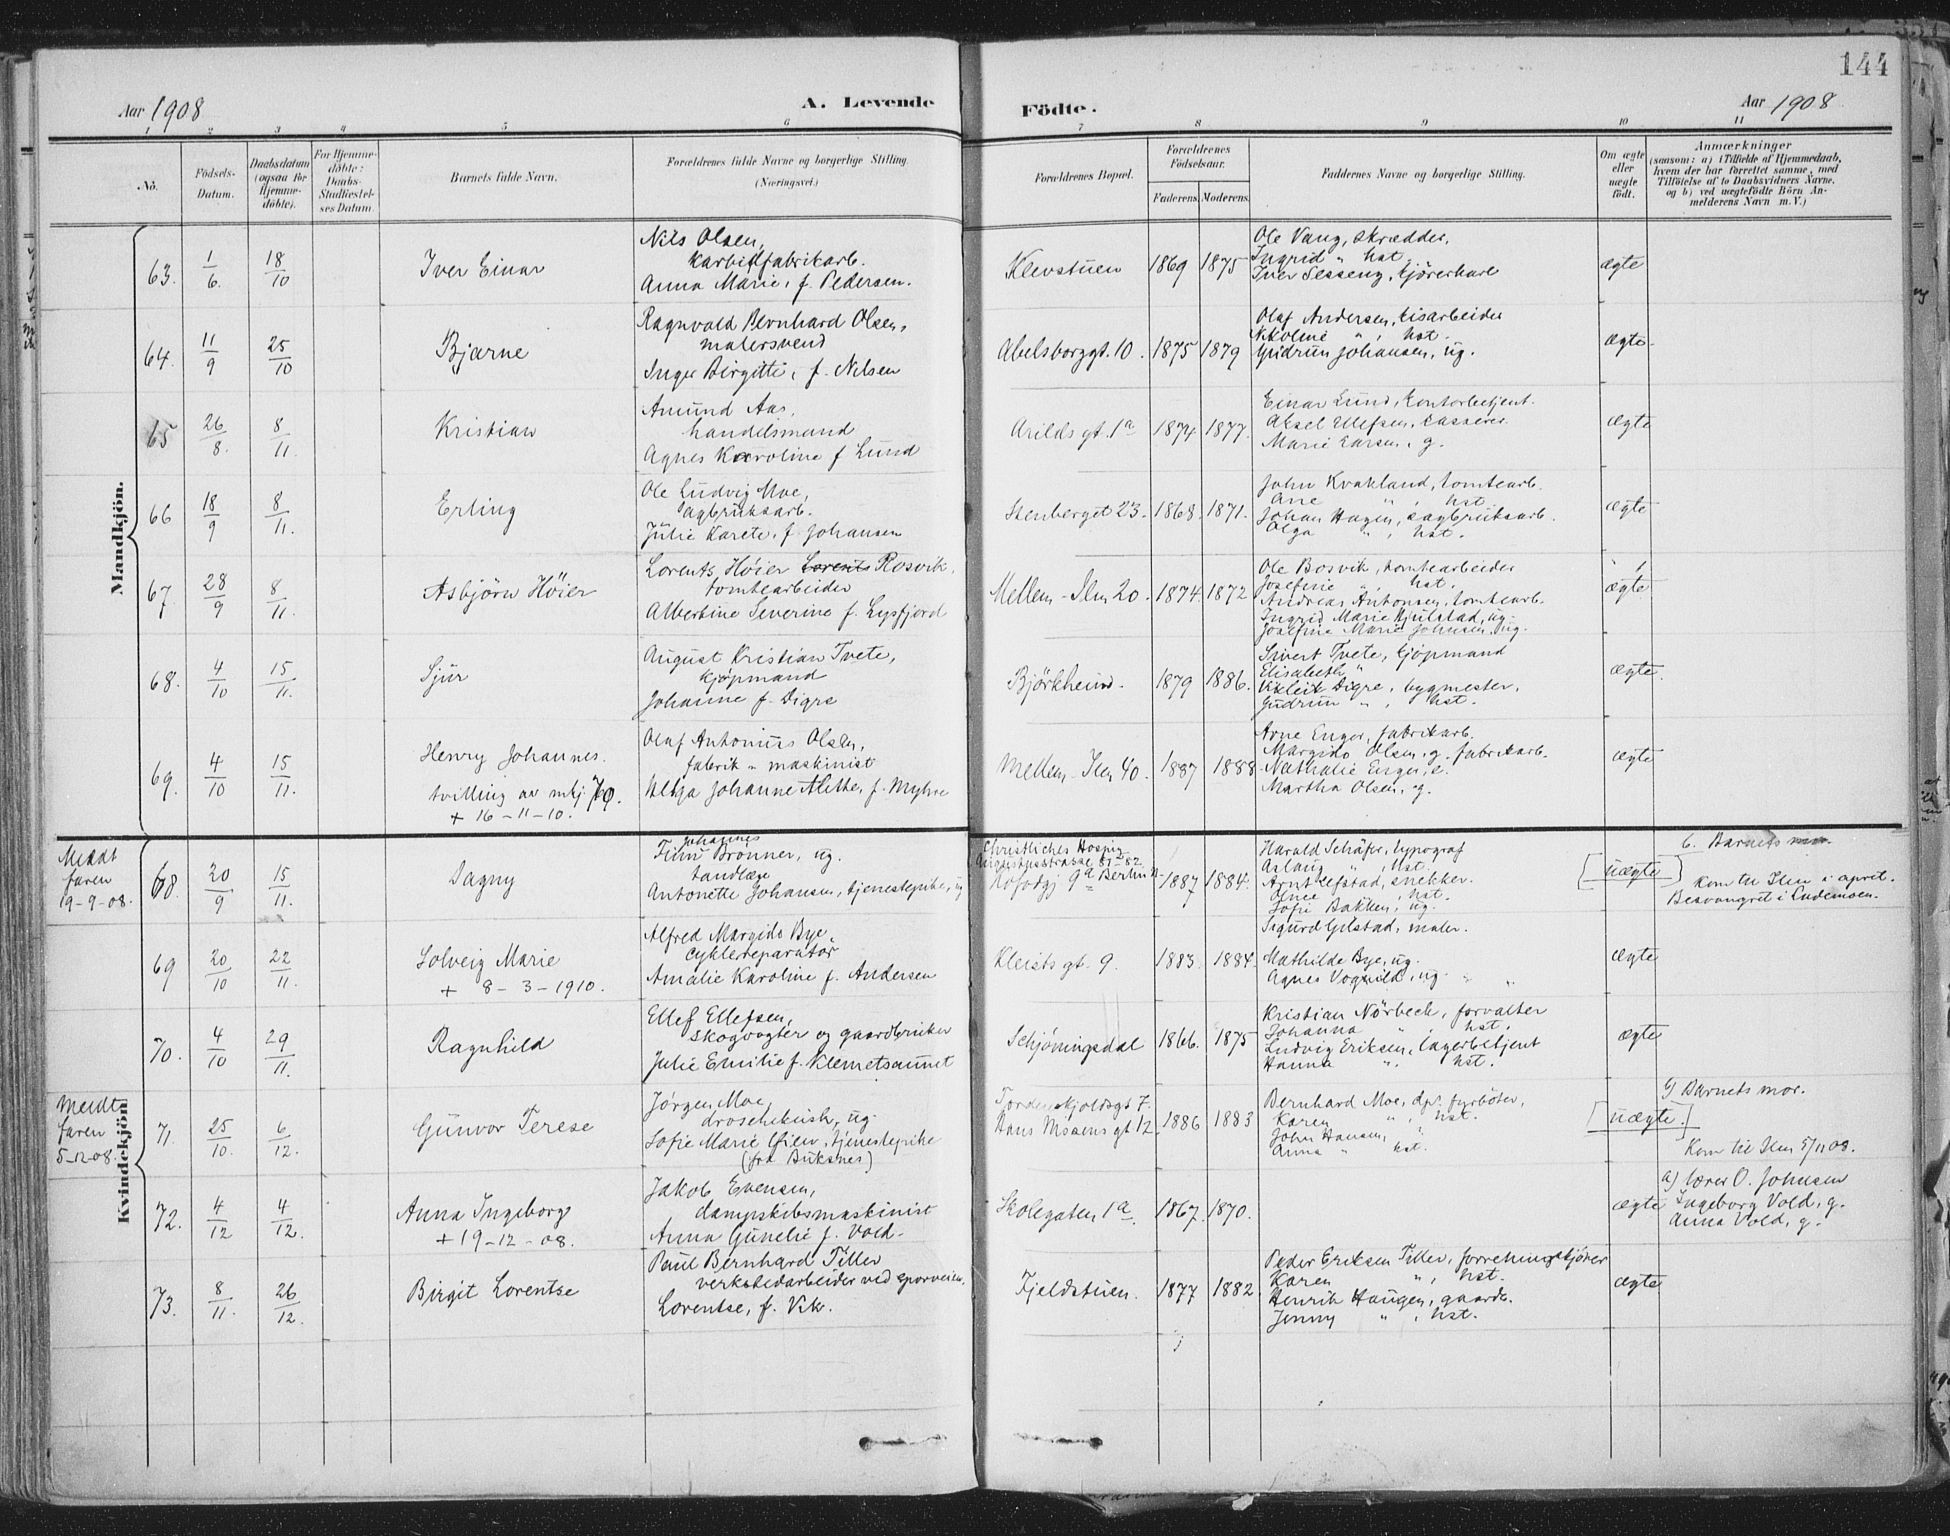 144
Aar 1908 A. Levende Födte. Aar 1908
1 2 3 4 5 6 7 8 9 10 11
No.
Födsels-Datum.
Daabsdatum (ogsaa for Hjemme-döbte).
For Hjemme-döbte: Daabs-Stadfæstel-ses Datum
Barnets fulde Navn.
Forældrenes fulde Navne og borgerlige Stilling. (Næringsvei.)
Forældrenes Bopæl.
Forældrenes Födselsaar.
Faderens. Moderens.
Faddernes Navne og borgerlige Stilling.
Om ægte eller uægte födt.
Anmærkninger
(saasom: a) i Tilfælde af Hjemmedaab, hvem der har forrettet samme, med Tilföielse af to Daabsvidners Navne, og b) ved uægtefödte Börn Anmelderens Navn m. V.)
Mandkjön.
63. 1/6. 18/10 Iver Einar
Nils Olsen,
karbidfabrikarb.
Anna Marie, f. Pedersen.
Klevstuen 1869 1875
Ole Vang, skrædder,
Ingrid " hst.
Iver Sesseng, kjørerkarl
ægte
64. 11/9 25/10 Bjarne
Ragnvald Bernhard Olsen,
malersvend
Inger Birgitte, f. Nilsen
Abelsborggt. 10. 1875 1879
Olaf Andersen, tisarbeider
Nikoline ", hst.
Gudrun Johansen, ug.
ægte
65 26/8. 8/11. Kristian
Amund Aas,
handelsmand
Agnes Karoline f Lund
Arilds gt. 1a 1874 1877.
Einar Lund, kontorbetjent.
Aksel Ellefsen, kasserer
Marie Larsen, g.
ægte
66 18/9 8/11. Erling
Ole Ludvig Moe,
sagbruksarb.
Julie Karete, f. Johansen
Stenberget 23. 1868. 1871.
John Kvakland, tomtearb.
Ane ", hst
Johan Hagen, sagbruksarb.
Olga ", hst.
ægte
67. 28/9 8/11. Asbjörn Höier
Lorents Höier Lorents Rosvik,
tomtearbeider
Albertine Severine f. Lysfjord
Mellem-Ilen 20. 1874. 1872
Ole Bosvik, tomtearbeider
Josefine ", hst.
Andreas Antonsen, tomtearb.
Ingrid Marie Hjulstad, ug.
Josefine Marie Johnsen, ug.
ægte
68. 4/10 15/11. Sjur
August Kristian Tvete,
kjøpmand
Johanne f. Digre
Björkheim. 1879 1886.
Sivert Tvete, kjøpmand
Elisabeth "
Vikleik Digre, bygmester,
Gudrun ", hst.
ægte.
69. 4/10 15/11. Henry Johannes.
tvilling av mkj. 70.
+ 16-11-10.
Olaf Antonius Olsen,
fabrik - maskinist
Helga Johanne Alette, f. Myhre
Mellem-Ilen 40. 1887 1888
Arne Enger, fabrikarb.
Margido Olsen, g. fabrikarb.
Nathalie Enger, e.
Martha Olsen, g.
ægte
Kvindekjön.
Meldt faren 19-9-08. 68. 20/9 15/11. Dagny
Johannes
Finn Brönner, ug.
tandlæge
Antonette Johansen, tjenestepike, ug
Christliches Hospiz
Augustusstrasse 81-82
Kofodgj 9a Berlin 1887 1884.
Harald Schäfer, typograf
Aslaug ", hst.
Arnt Lefstad, snekker.
hst.
Sofie Bakken, ug.
uægte
6. Barnets mor
Kom til Ilen i april.
Besvangret i Lademoen.
69 20/10 22/11. Solveig Marie
+ 8-3-1910.
Alfred Margido Bye,
cyklereparatör
Amalie Karoline f. Andersen
Kleists gt. 9. 1883. 1884.
Sigurd Gilstad, maler.
Mathilde Bye, ug.
Agnes Vognild, ug. "
ægte
70. 4/10 29/11. Ragnhild
Ellef Ellefsen,
skogvogter og gaardbruker
Julie Emilie f. Klemetsaunet
Schjøningsdal 1866. 1875
Kristian Nörbeck, forvalter
Johanna ", hst.
Ludvig Eriksen, lagerbetjent
Hanna ", hst.
ægte
Meldt faren 5-12-08. 71. 25/10. 6/12. Gunvor Terese
Jørgen Moe,
droschekusk, ug.
Sofie Marie , tjenestepike
(fra Buksnes)
Tordenskjoldsgt 7.
Hans gt 12. 1886 1883
Bernhard Moe, dps. fyrböter,
Karen ", hst.
John Hansen, "
Anna " hst.
uægte.
b) Barnets mor.
Kom til Ilen 5/11 08.
72. 4/12 4/12. Anna Ingeborg
+ 19-12-08.
Jakob Evensen,
dampskibsmaskinist
Anna Gunelie f. Vold.
Skolegaten 1a. 1867. 1870.
ægte
a) lærer O. Johnsen
Ingeborg Vold, g.
Anna Vold, g.
73. 8/11. 26/12. Birgit Lorentse
Paul Bernhard Tiller
verkstedarbeider ved sporveien.
Lorentse, f. Vik.
Fjeldstuen. 1877 1882
Peder Eriksen Tiller, forretningskjører
Karen ", hst.
Henrik Haugen, gaardb.
Jenny ", hst.
ægte